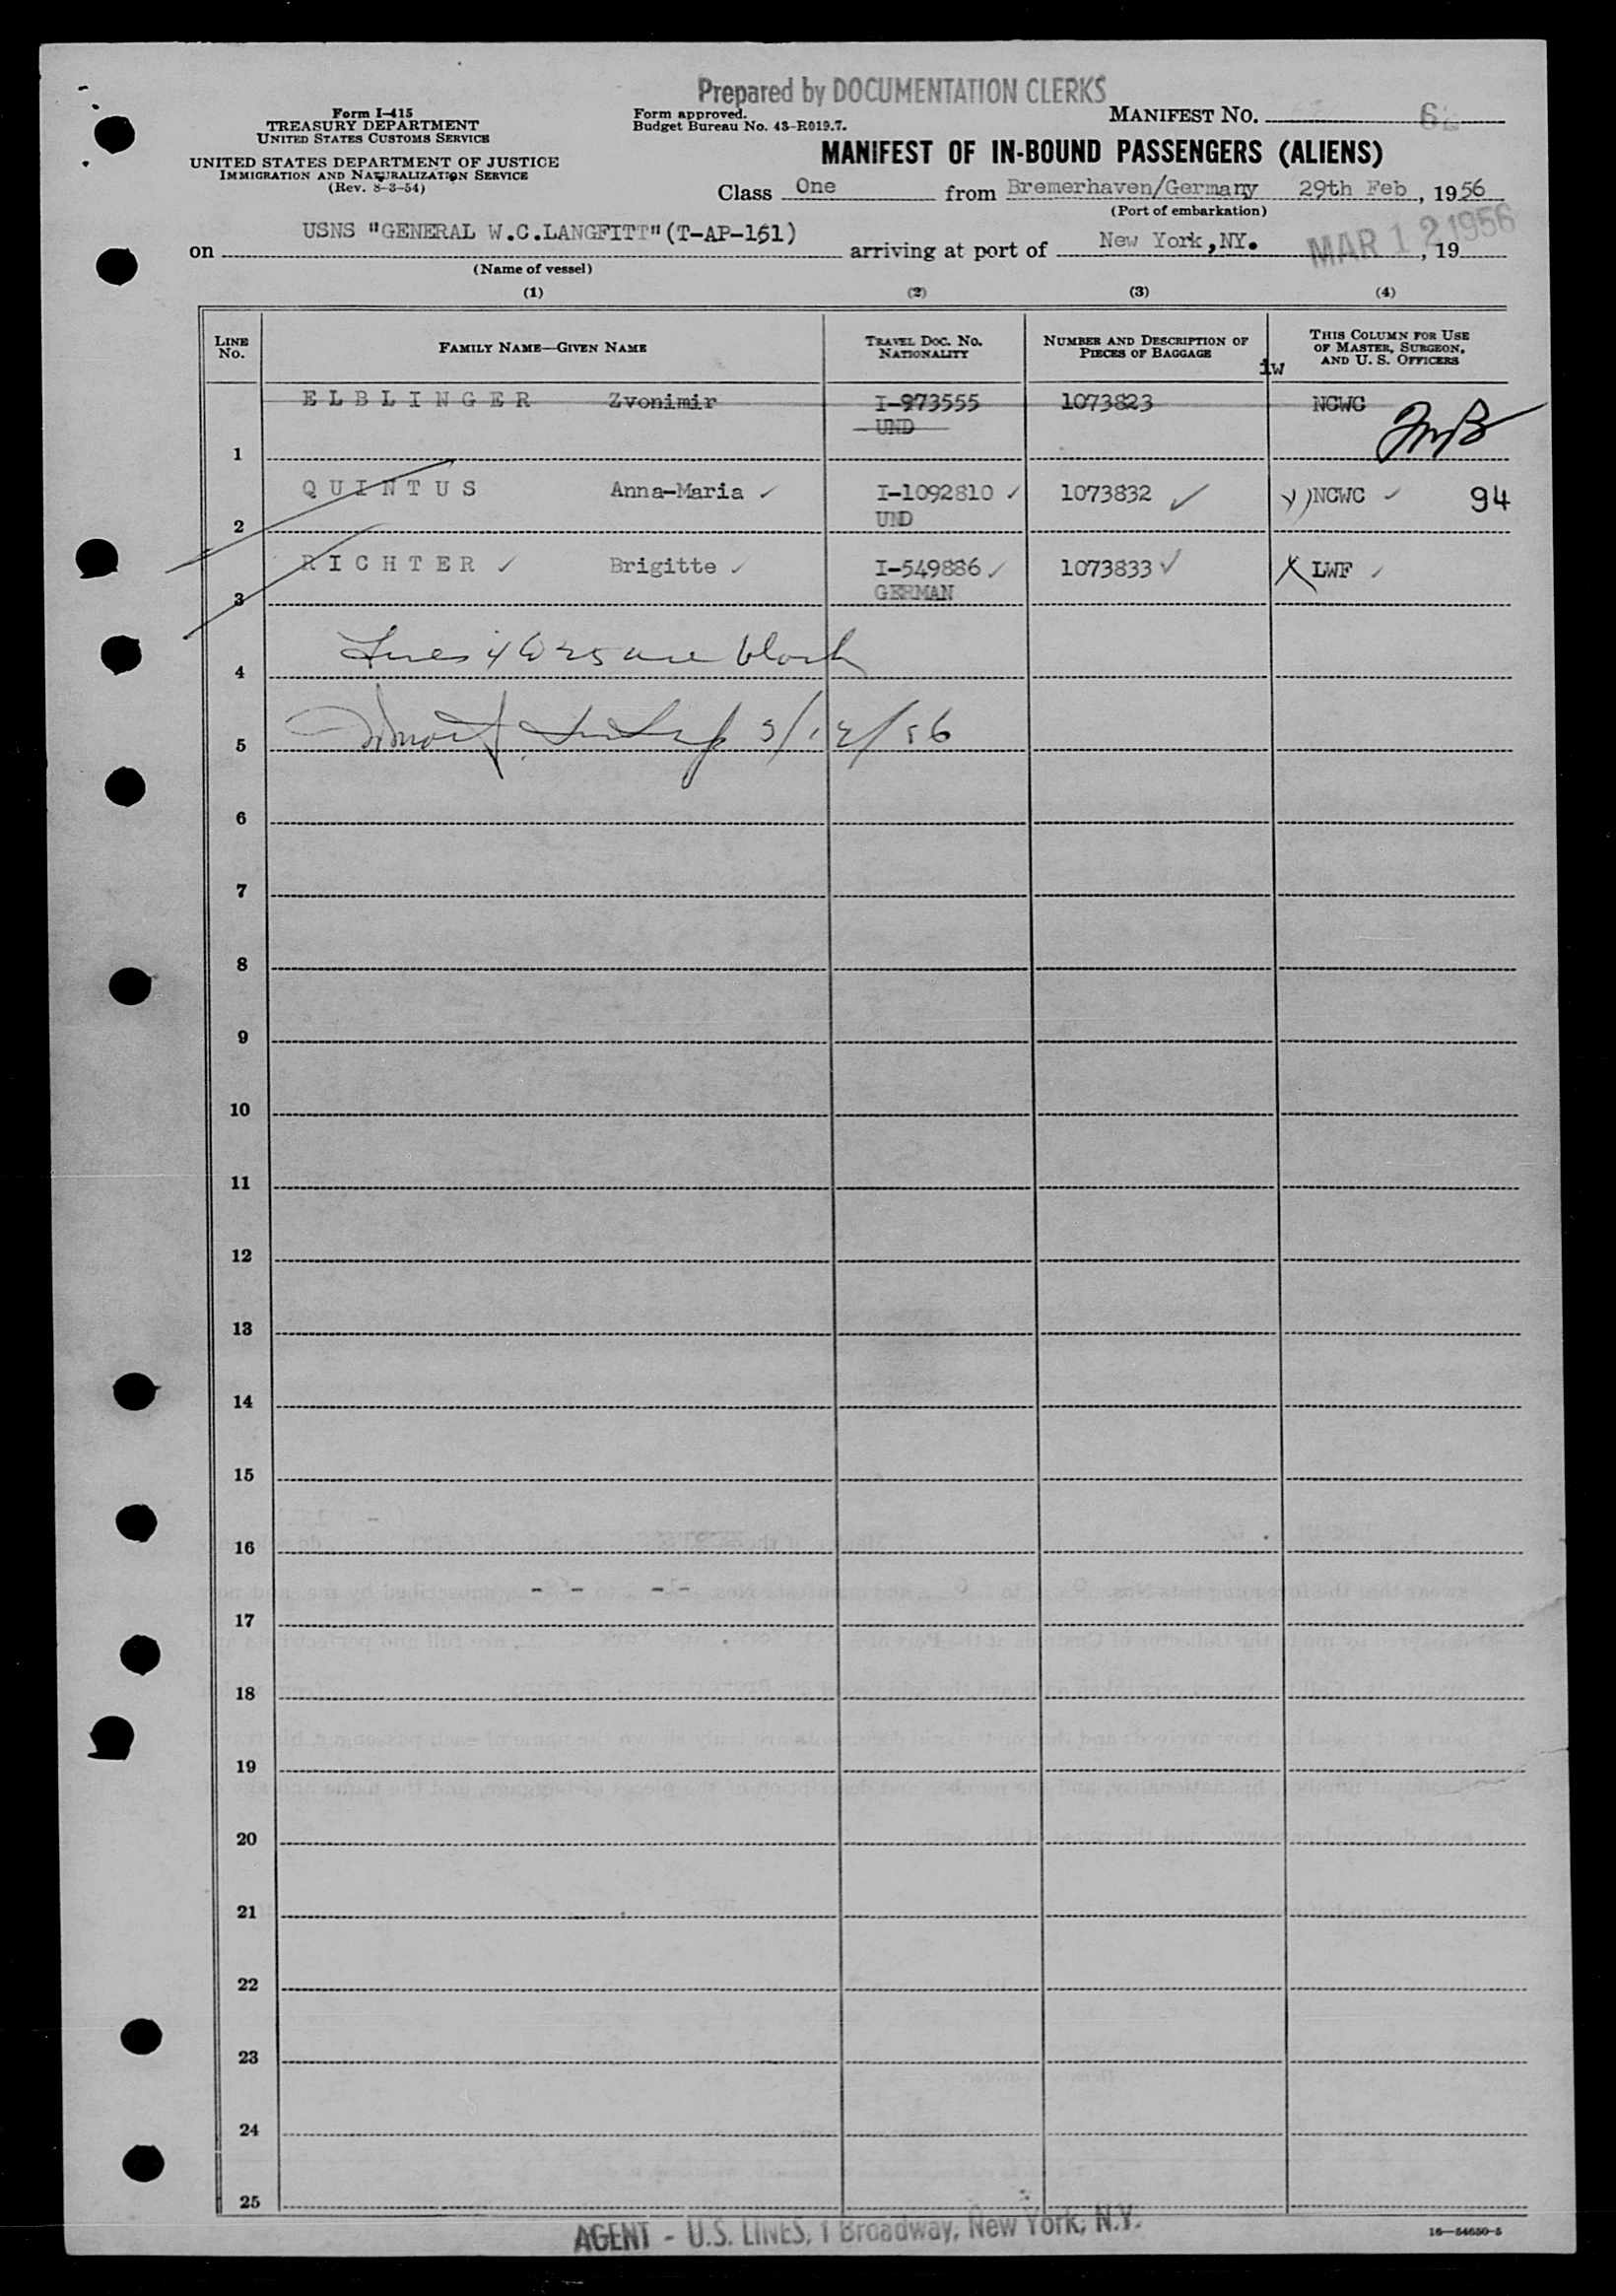 Prepared by DOCUMENTATION CLERKS
Form I-415
TREASURY DEPARTMENT
UNITED STATES CUSTOMS SERVICE
UNITED STATES DEPARTMENT OF JUSTICE
IMMIGRATION AND NATURALIZATION SERVICE
(Rev. 8-3-54)
Form approved.
Budget Bureau No. 43-R019.7.
MANIFEST NO.
MANIFEST OF IN-BOUND PASSENGERS (ALIENS)
Class One from Bremerhaven/Germany 29th Feb, 1956
(Port of embarkation)
on USNS "GENERAL W.C.LANGFITT"(T-AP-151) arriving at port of New York,NY. MAR 12 1956, 19
(Name of vessel)
(1) (2) (3) (4)
LINE NO. FAMILY NAME—GIVEN NAME TRAVEL DOC. NO. NATIONALITY NUMBER AND DESCRIPTION OF PIECES OF BAGGAGE THIS COLUMN FOR USE OF MASTER, SURGEON, AND U. S. OFFICERS
iw
1 ELBLINGER Zvonimir I-973555 1073823 NCWC
UND
2 QUINTUS Anna-Maria ✓ I-1092810 ✓ 1073832 ✓ NCWC ✓ 94
UND
3 RICHTER ✓ Brigitte ✓ I-549886 ✓ 1073833 ✓ X LWF ✓
GERMAN
4 Lines 4 to 25 are blank
5 3/12/56
6
7
8
9
10
11
12
13
14
15
16
17
18
19
20
21
22
23
24
25
AGENT - U.S. LINES, 1 Broadway, New York, N.Y.
16—54650-5